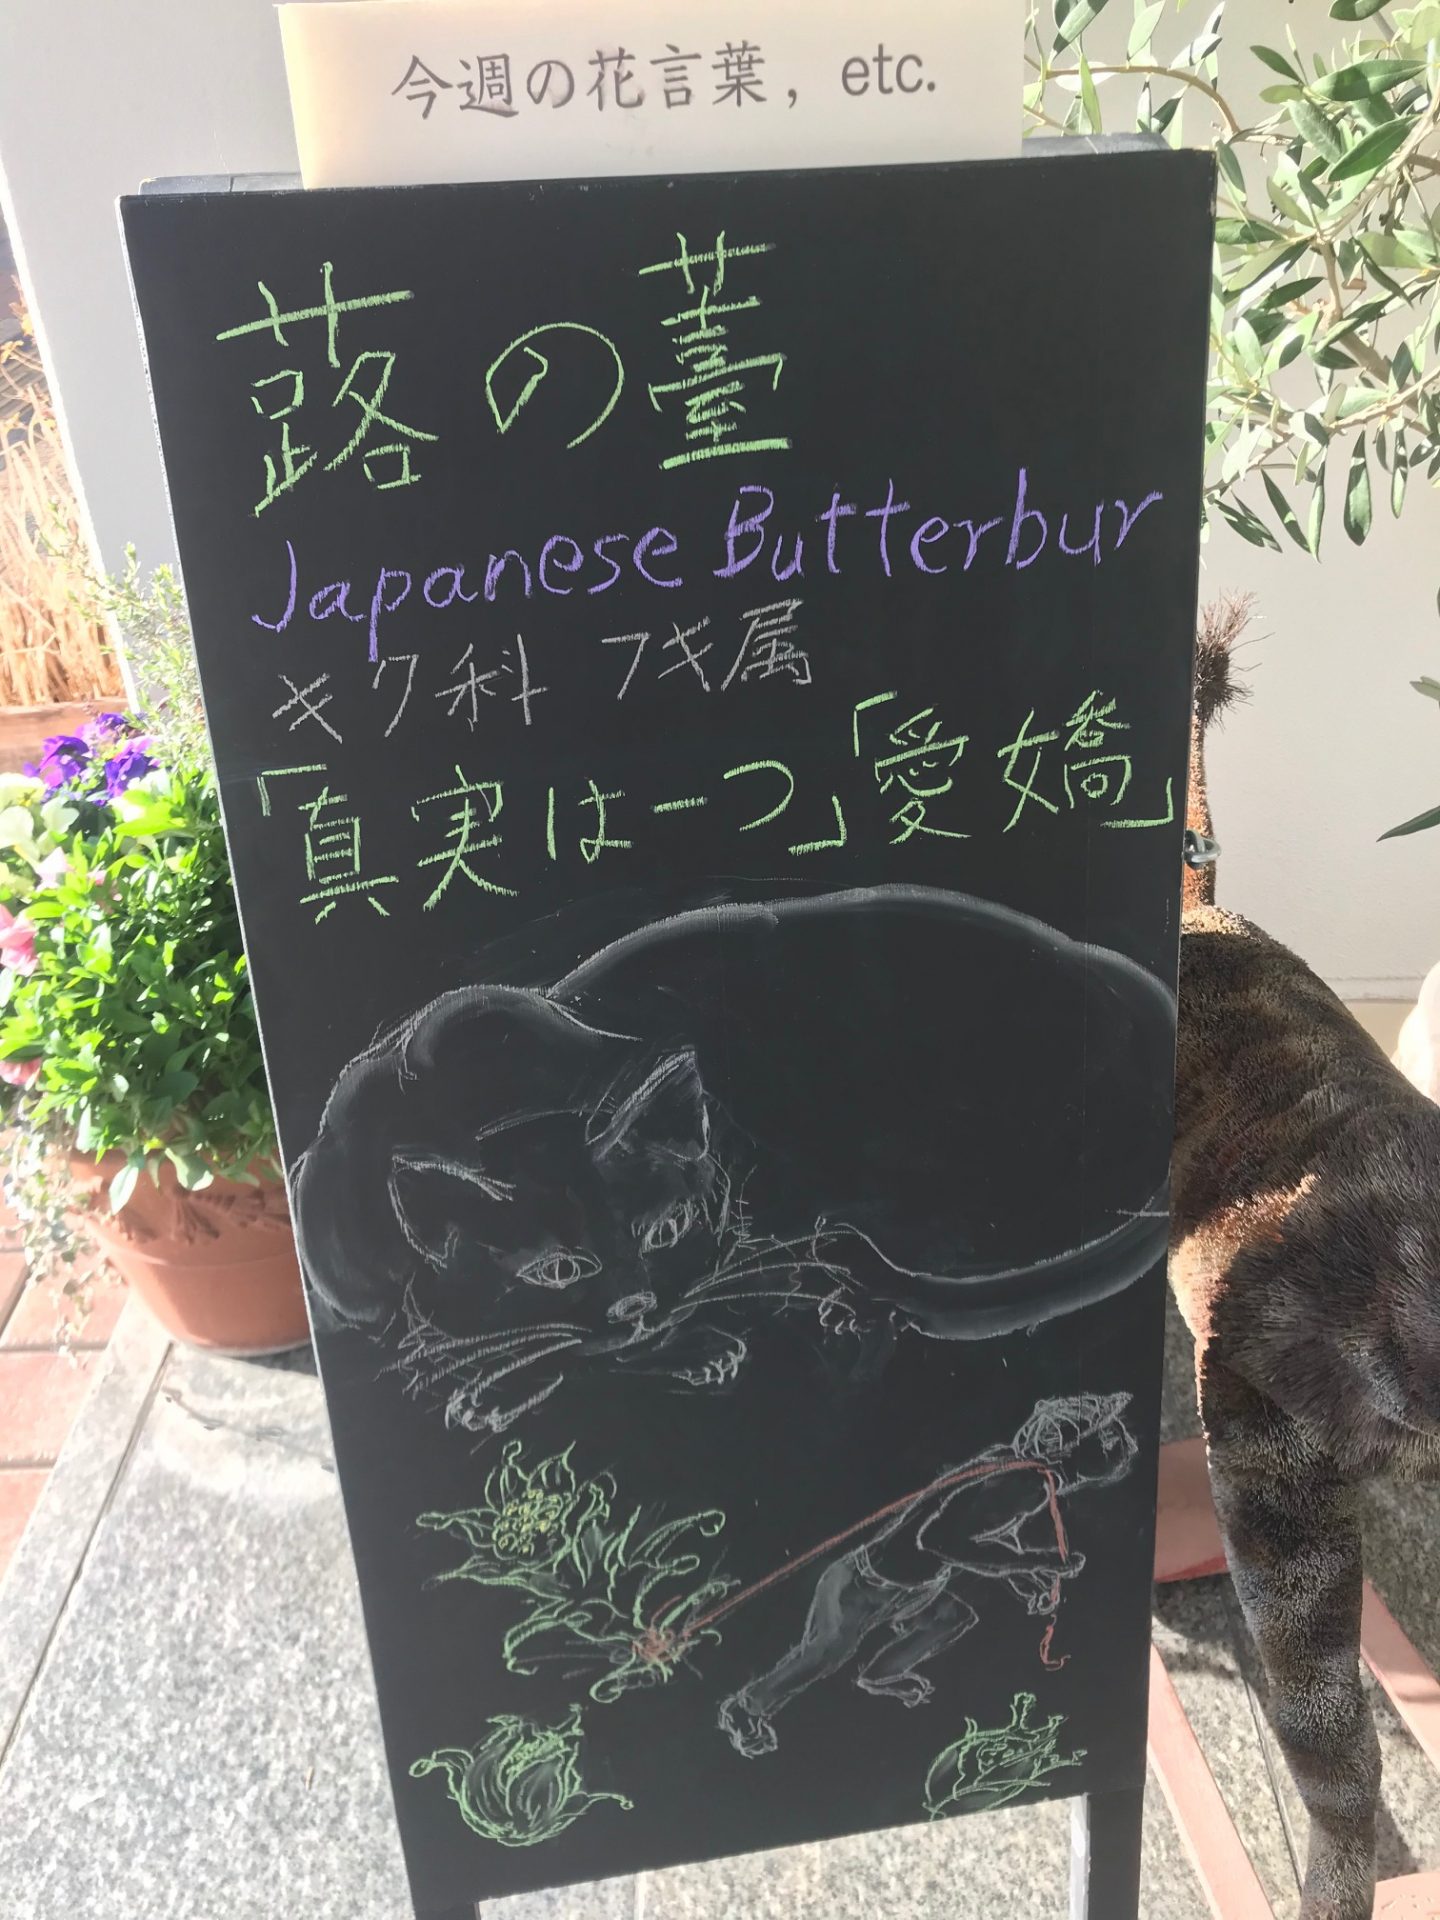 今週の花言葉, etc.
蕗の薹
Japanese Butterbur
キク科 フキ属
「真実は一つ」「愛嬌」